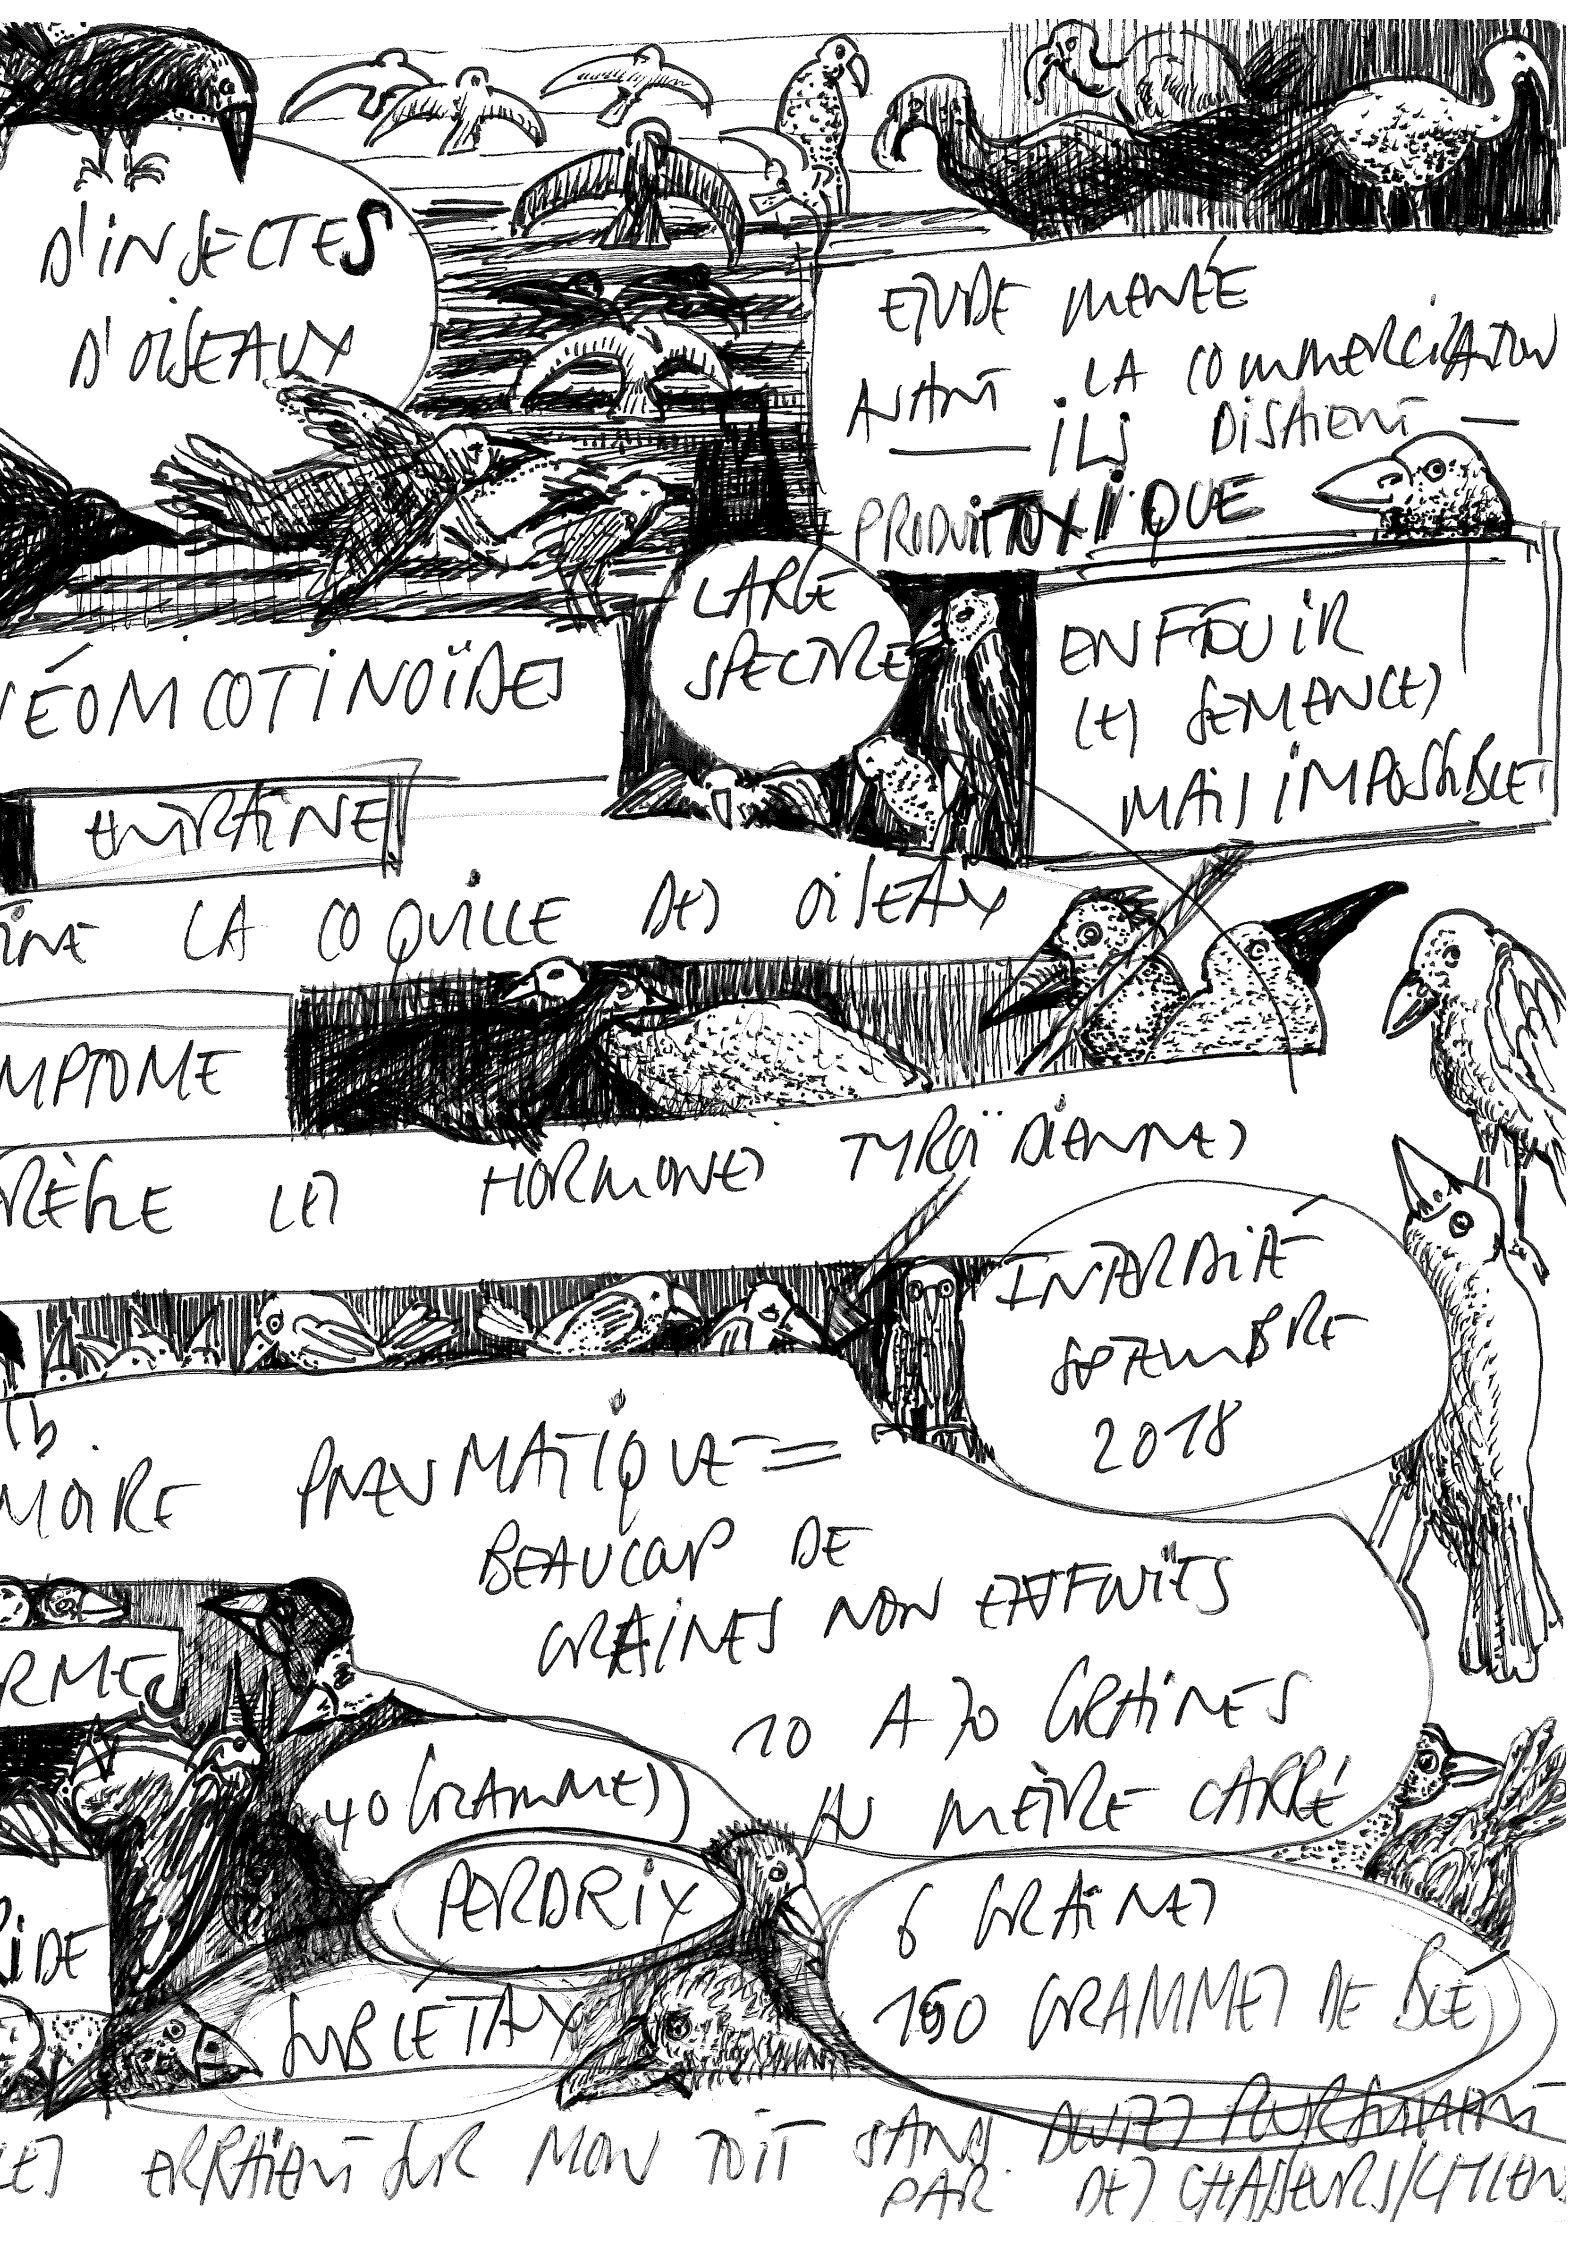 D'INSECTES
D'OISEAUX
ETUDE MENÉE
AVANT LA COMMERCIALISATION
— ILS DISAIENT —
PRODUIT TOXIQUE
LARGE
SPECTRE
ENFOUIR
LES SEMENCES
MAIS IMPOSSIBLE
NÉONICOTINOÏDES
ENTRAINE
INE LA COQUILLE DES OISEAUX
MPTOME
RÈGLE LES HORMONES TYROÏDIENNES
INTERDIT
SEPTEMBRE
2018
MOIRE PNEUMATIQUE =
BEAUCOUP DE
GRAINES NON ENFOUIES
10 A 70 GRAINES
AU MÈTRE CARRÉ
RMES
40 GRAMMES
PERDRIX
6 GRAINES
150 GRAMMES DE BLÉ
IDE
SUBLÉTAUX
LES ERRAIENT SUR MON TOIT SANS
PAR DES CHASSEURS/CHIENS